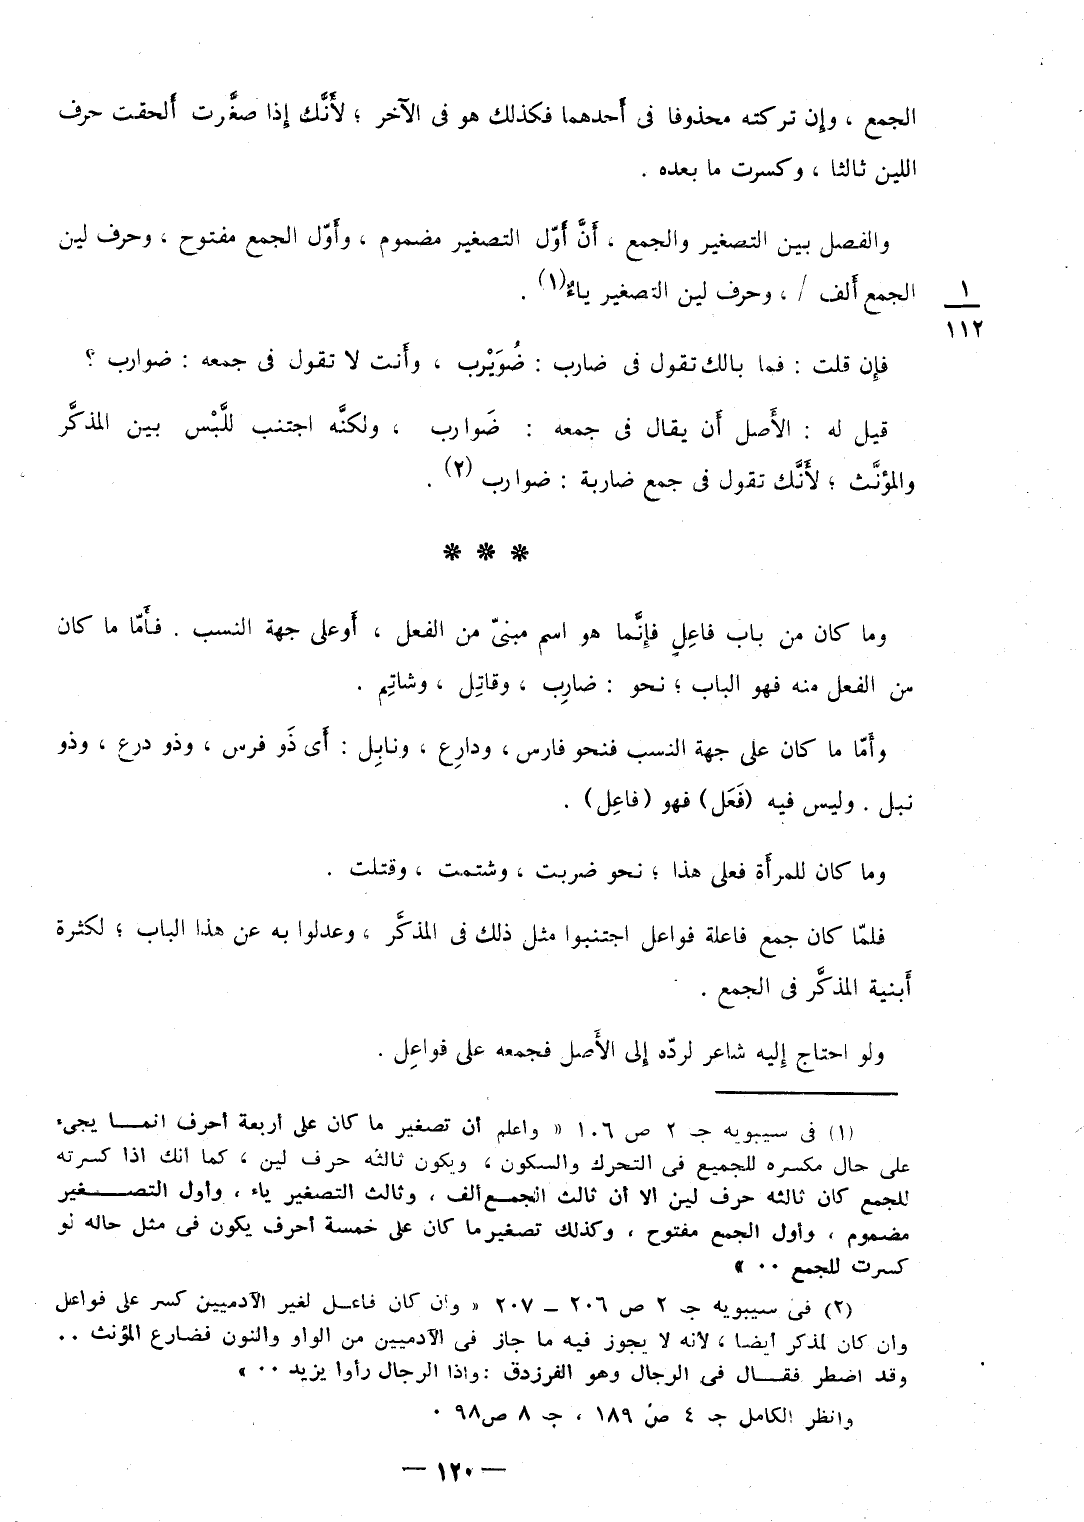 الجمع ، وإن تركته محذوفا فى أَحدهما فكذلك هو فى الآخر ؛ لأَنَّك إِذا صغَّرت أَلحقت حرف
اللين ثالثا ، وكسرت ما بعده .
والفصل بين التصغير والجمع ، أَنَّ أَوّل التصغير مضموم ، وأَوّل الجمع مفتوح ، وحرف لين
الجمع أَلف / ، وحرف لين التصغير ياءٌ(١) .
١
١١٢
فإِن قلت : فما بالك تقول فى ضارب : ضُوَيْرب ، وأَنت لا تقول فى جمعه : ضوارب ؟
قيل له : الأَصل أَن يقال فى جمعه : ضَوارب ، ولكنَّه اجتنب للَّبْس بين المذكَّر
والمؤنَّث ؛ لأَنَّك تقول فى جمع ضاربة : ضوارب (٢) .
* * *
وما كان من باب فاعِلٍ فإِنَّما هو اسم مبنىّ من الفعل ، أَو على جهة النسب . فأَمّا ما كان
من الفعل منه فهو الباب ؛ نحو : ضارِب ، وقاتِل ، وشاتِم .
وأَمّا ما كان على جهة النسب فنحو فارس ، ودارِع ، ونابِل : أَى ذَو فرس ، وذو درع ، وذو
نبل . وليس فيه (فَعَل) فهو (فاعِل) .
وما كان للمرأَة فعلى هذا ؛ نحو ضربت ، وشتمت ، وقتلت .
فلمّا كان جمع فاعلة فواعل اجتنبوا مثل ذلك فى المذكَّر ، وعدلوا به عن هذا الباب ؛ لكثرة
أَبنية المذكَّر فى الجمع .
ولو احتاج إِليه شاعر لردّه إِلى الأَصل فجمعه على فواعِل .
(١) فى سيبويه جـ ٢ ص ١٠٦ « واعلم أن تصغير ما كان على أربعة أحرف انما يجىء
على حال مكسره للجميع فى التحرك والسكون ، ويكون ثالثه حرف لين ، كما انك اذا كسرته
للجمع كان ثالثه حرف لين الا أن ثالث الجمع ألف ، وثالث التصغير ياء ، وأول التصغير
مضموم ، وأول الجمع مفتوح ، وكذلك تصغير ما كان على خمسة أحرف يكون فى مثل حاله لو
كسرت للجمع ٠٠ »
(٢) فى سيبويه جـ ٢ ص ٢٠٦ ـ ٢٠٧ « وان كان فاعل لغير الآدميين كسر على فواعل
وان كان لمذكر أيضا ، لأنه لا يجوز فيه ما جاز فى الآدميين من الواو والنون فضارع المؤنث ..
وقد اضطر فقال فى الرجال وهو الفرزدق : واذا الرجال رأوا يزيد ٠٠ »
وانظر الكامل جـ ٤ ص ١٨٩ ، جـ ٨ ص ٩٨ ٠
— ١٢٠ —